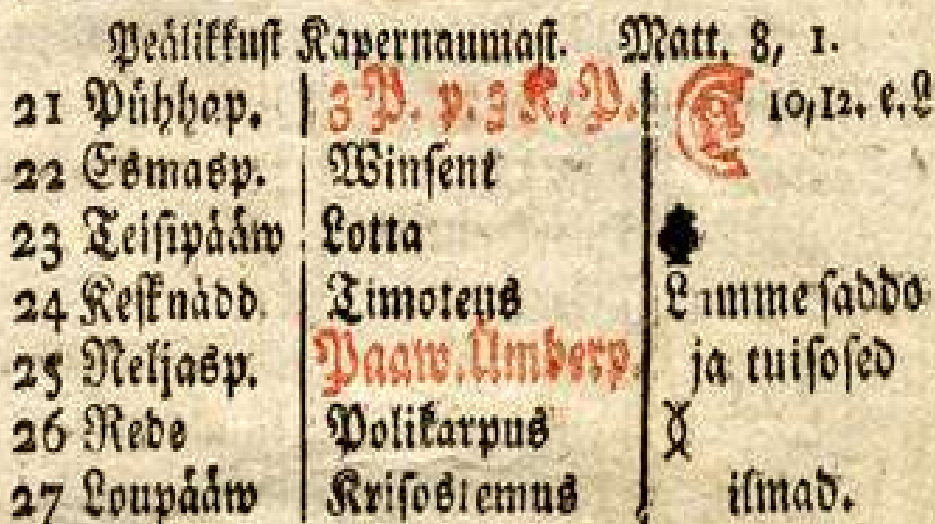 Peälikkust Kapernaumast. Matt. 8, 1.
21 Pühhap. 3 P. p. 3 K. P. 10,12. e. L
22 Esmasp. Winsent
23 Teisipääw Lotta
24 Kesknädd. Timoteus Lumme saddo
25 Neljasp. Paaw. Ümberp. ja tuisosed
26 Rede Polikarpus
27 Loupääw Krisostemus ilmad.